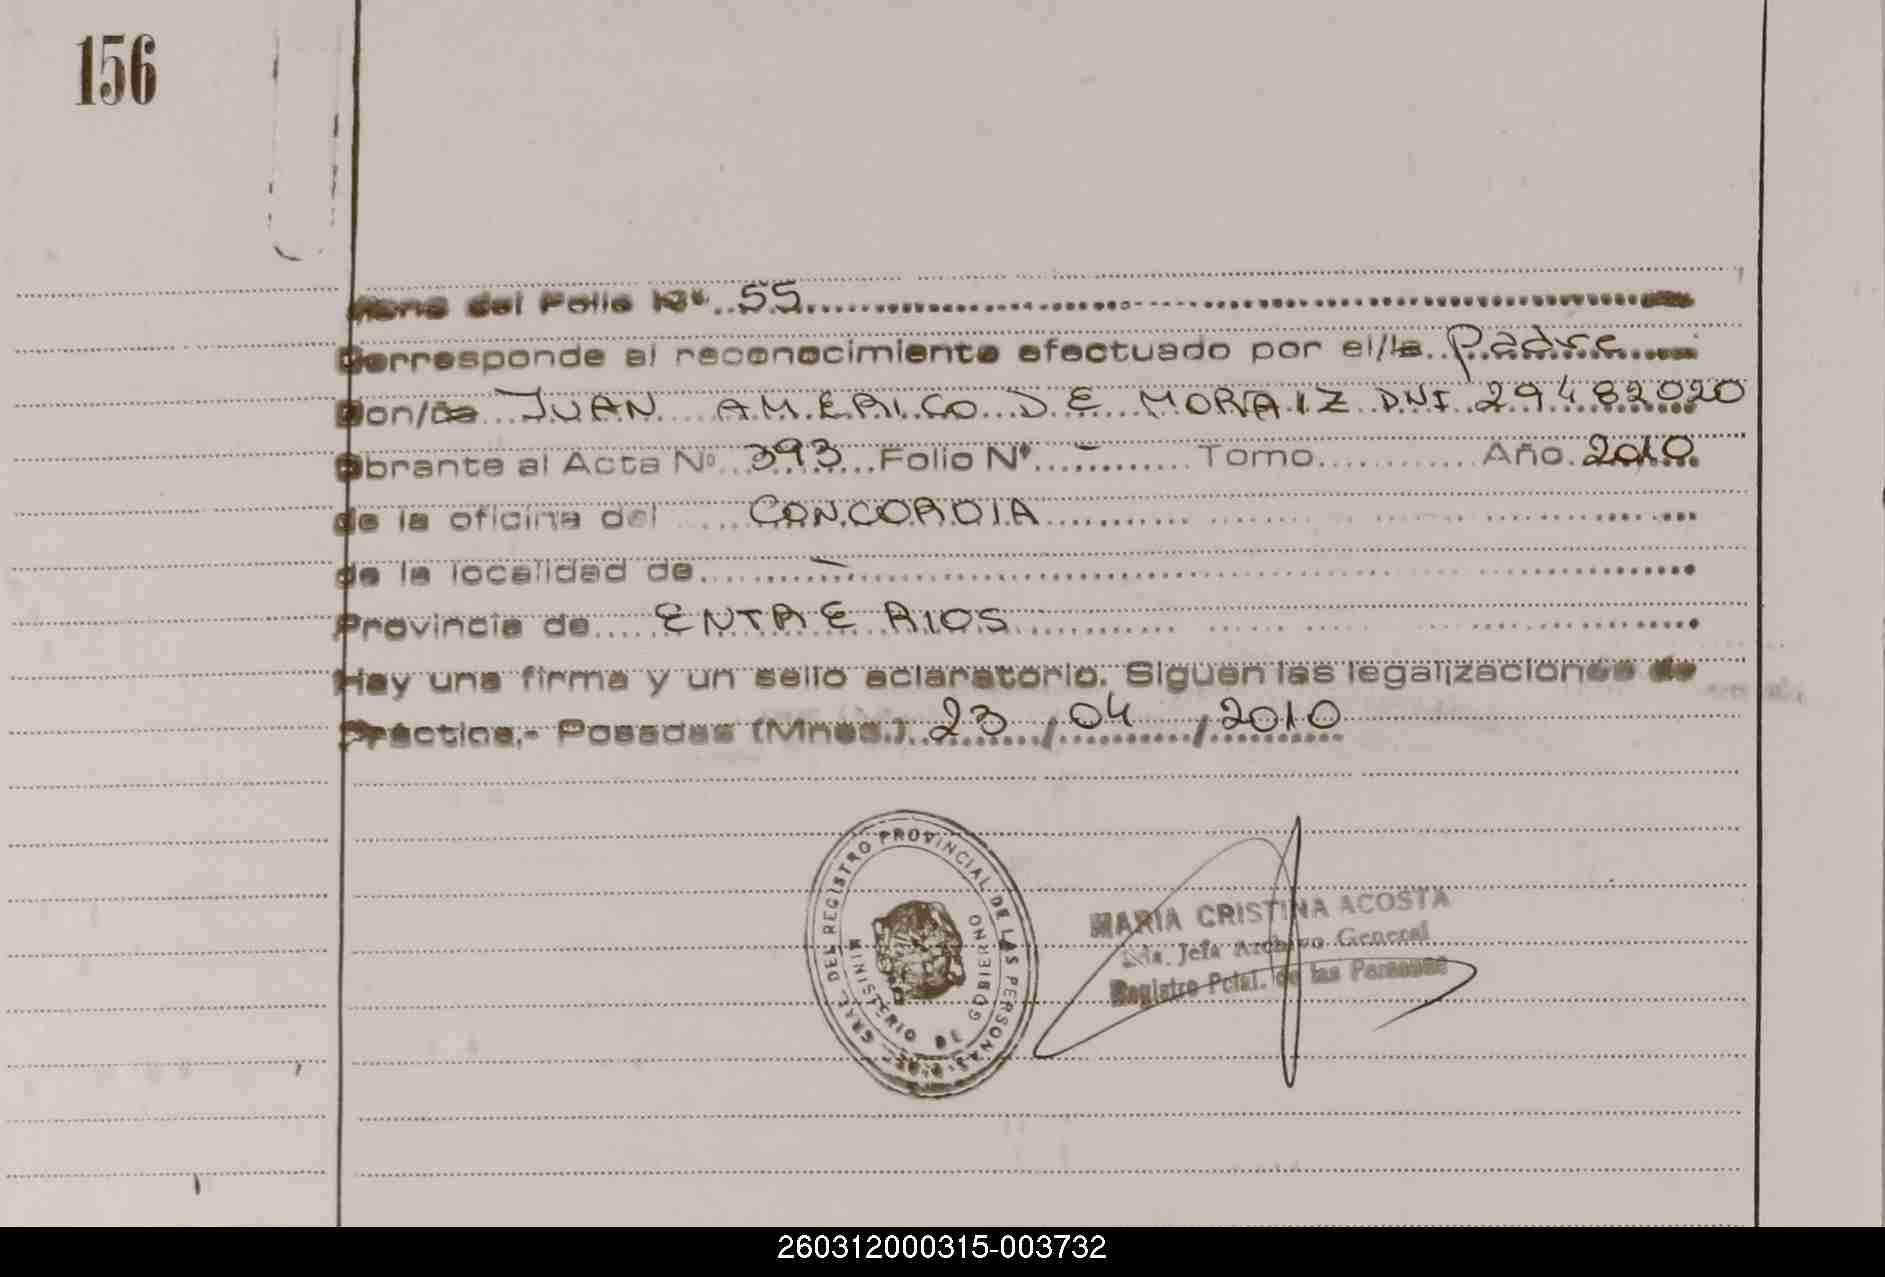 156
Viene del Folio Nº. 55
Corresponde al reconocimiento efectuado por el/la Padre
Don/ña JUAN AMERICO DE MORAIZ DNI 29482020
Obrante al Acta Nº 393 Folio Nº - Tomo Año 2010
de la oficina del CONCORDIA
de la localidad de -
Provincia de ENTRE RIOS
Hay una firma y un sello aclaratorio. Siguen las legalizaciones de
Práctica.- Posadas (Mnes.) 23/04/2010
GRAL. DEL REGISTRO PROVINCIAL DE LAS PERSONAS
MINISTERIO DE GOBIERNO
MARIA CRISTINA ACOSTA
Jefa Archivo General
Registro Pcial. de las Personas
260312000315-003732